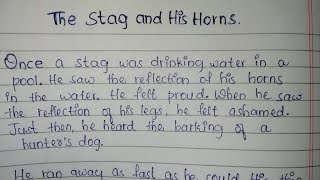 The Stag and His Horns.
Once a stag was drinking water in a
pool. He saw the reflection of his horns
in the water. He felt proud. When he saw
the reflection of his legs, he felt ashamed.
Just then, he heard the barking of a
hunter's dog.
He ran away as fast as he could. His thin